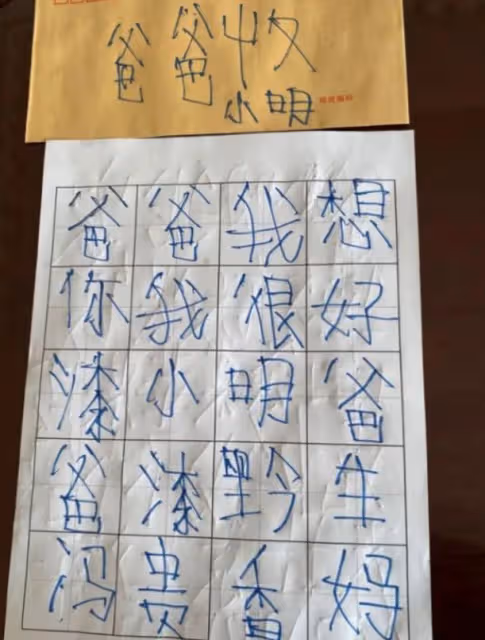 爸爸收
小明
爸爸我想
你我很好
漆小明爸
爸漆黔生
冯贵香妈